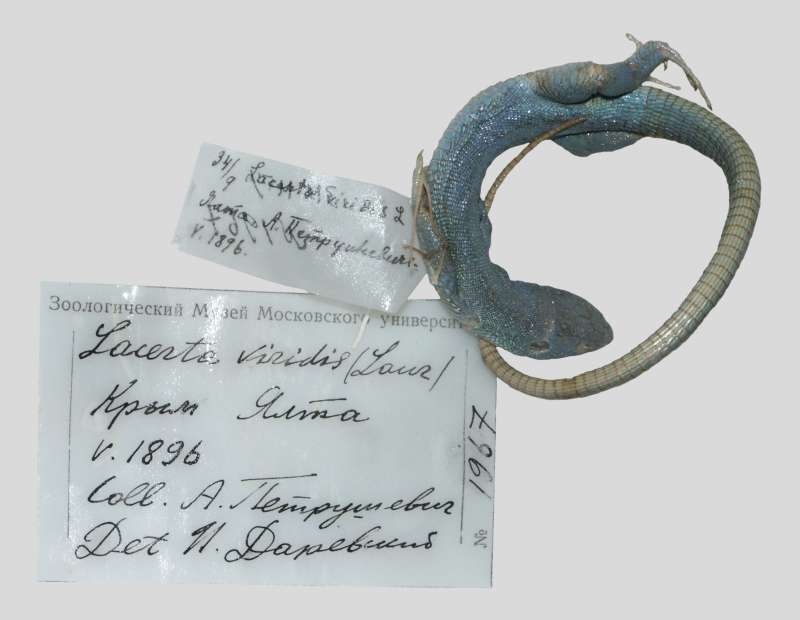 34/9 Lacerta viridis L
Ялта А. Петрушевич
V. 1896.
Зоологический Музей Московского универси
Lacerta viridis (Laur)
Крым Ялта
V. 1896
Coll. А. Петрушевич
Det И. Даревский
№ 1967